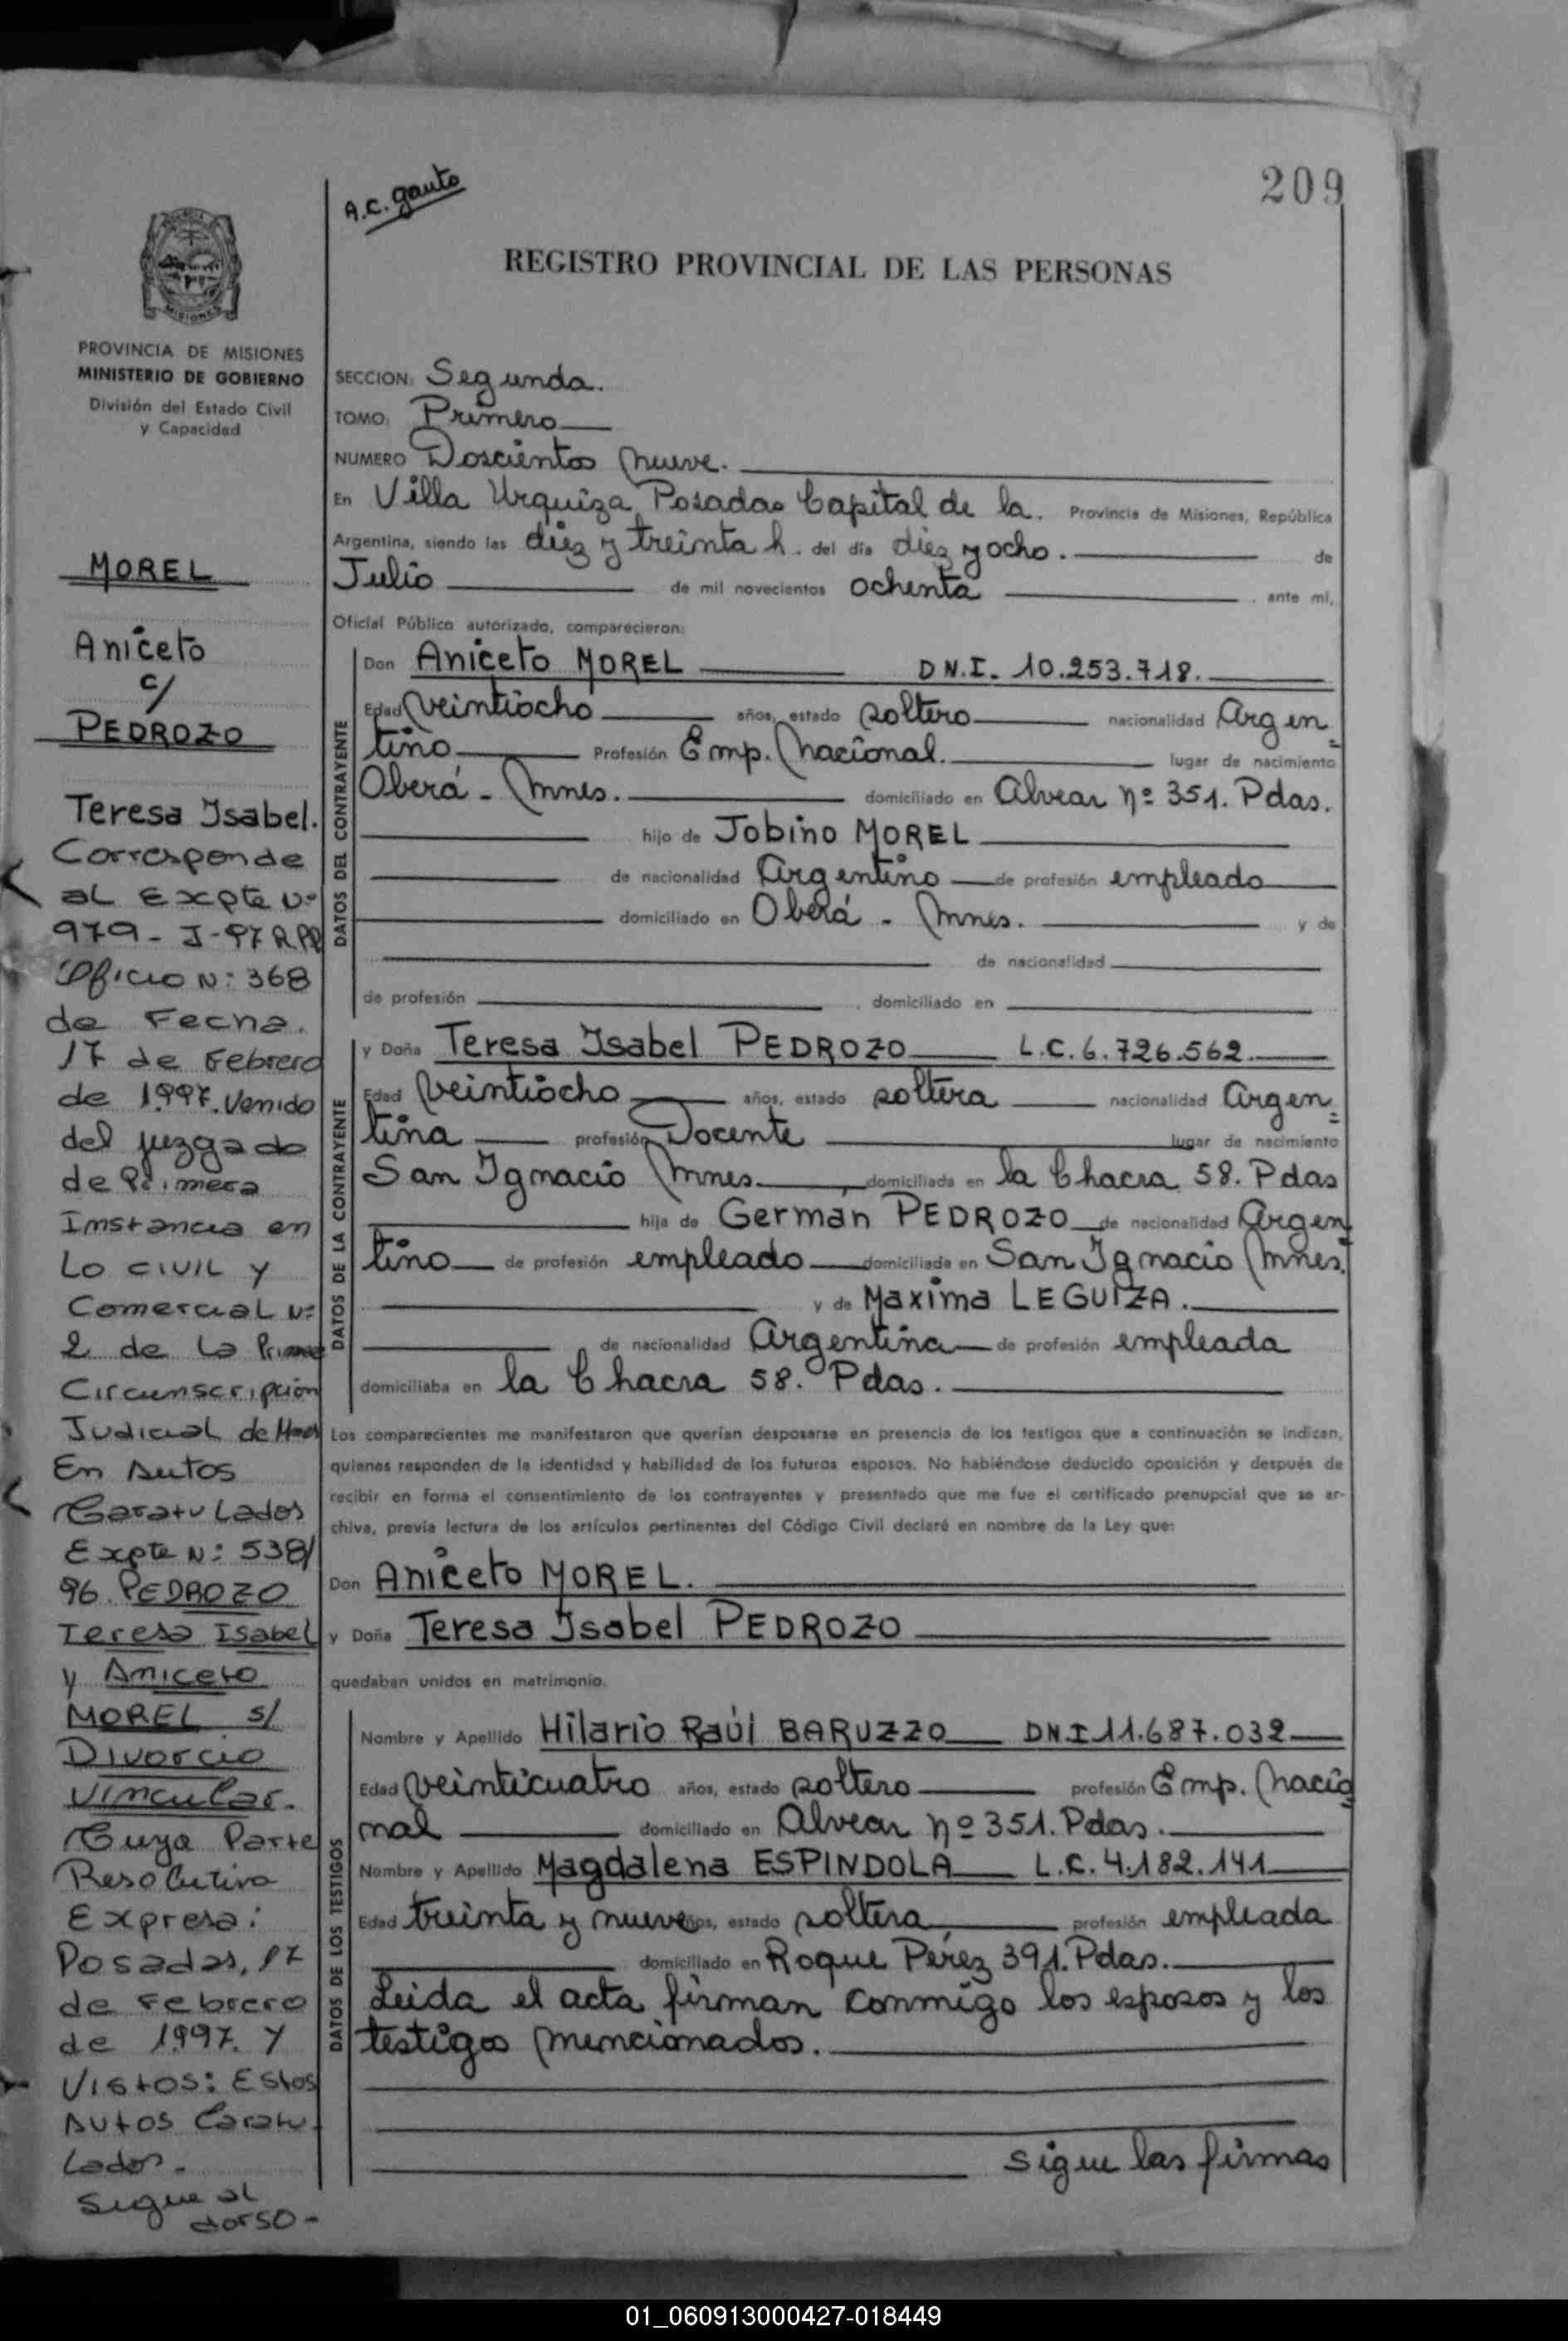 209
A.C. Gauto
REGISTRO PROVINCIAL DE LAS PERSONAS
MISIONES
PROVINCIA DE MISIONES
MINISTERIO DE GOBIERNO
División del Estado Civil
y Capacidad
MOREL
Aniceto
c/
PEDROZO
Teresa Isabel.
Corresponde
al Expte Nº
979-J-97 R.PP
Oficio N: 368
de Fecha.
17 de Febrero
de 1997. Venido
del juzgado
de Primera
Instancia en
Lo civil y
Comercial Nº
2 de La Prime
Circunscripción
Judicial de Mnes
En Autos
Caratulados
Expte N: 538/
96. PEDROZO
Teresa Isabel
y Aniceto
MOREL s/
Divorcio
Vincular.
Cuya Parte
Resolutiva
Expresa:
Posadas, 17
de Febrero
de 1997. Y
Vistos: Estos
Autos Caratu
Lados.
Sigue al
dorso-
SECCION: Segunda.
TOMO: Primero
NUMERO Doscientos nueve.
En Villa Urquiza, Posadas Capital de la. Provincia de Misiones, República
Argentina, siendo las diez y treinta h. del día diez y ocho. de
Julio de mil novecientos ochenta ante mí,
Oficial Público autorizado, comparecieron:
DATOS DEL CONTRAYENTE
Don Aniceto MOREL D.N.I. 10.253.718.
Edad veintiocho años, estado soltero nacionalidad Argen=
tino Profesión Emp. Nacional. lugar de nacimiento
Oberá - Mnes. domiciliado en Alvear nº 351. Pdas.
hijo de Jobino MOREL
de nacionalidad Argentino de profesión empleado
domiciliado en Oberá - Mnes. y de
de nacionalidad
de profesión , domiciliado en
DATOS DE LA CONTRAYENTE
y Doña Teresa Isabel PEDROZO L.C. 6.726.562.
Edad veintiocho años, estado soltera nacionalidad Argen=
tina profesión Docente lugar de nacimiento
San Ignacio Mnes , domiciliada en la Chacra 58. Pdas
hija de Germán PEDROZO de nacionalidad Argen
tino de profesión empleado domiciliado en San Ignacio Mnes.
y de Maxima LEGUIZA.
de nacionalidad Argentina de profesión empleada
domiciliaba en la Chacra 58. Pdas.
Los comparecientes me manifestaron que querían desposarse en presencia de los testigos que a continuación se indican,
quienes responden de la identidad y habilidad de los futuros esposos. No habiéndose deducido oposición y después de
recibir en forma el consentimiento de los contrayentes y presentado que me fue el certificado prenupcial que se ar-
chiva, previa lectura de los artículos pertinentes del Código Civil declaré en nombre de la Ley que:
Don Aniceto MOREL.
y Doña Teresa Isabel PEDROZO
quedaban unidos en matrimonio.
DATOS DE LOS TESTIGOS
Nombre y Apellido Hilario Raúl BARUZZO DN.I 11.687.032
Edad veinticuatro años, estado soltero profesión Emp. Nacio
nal domiciliado en Alvear nº 351. Pdas.
Nombre y Apellido Magdalena ESPINDOLA L.C. 4.182.141
Edad treinta y nueve años, estado soltera profesión empleada
domiciliado en Roque Pérez 391. Pdas.
Leida el acta firman conmigo los esposos y los
testigos mencionados.
sigue las firmas
01_060913000427-018449